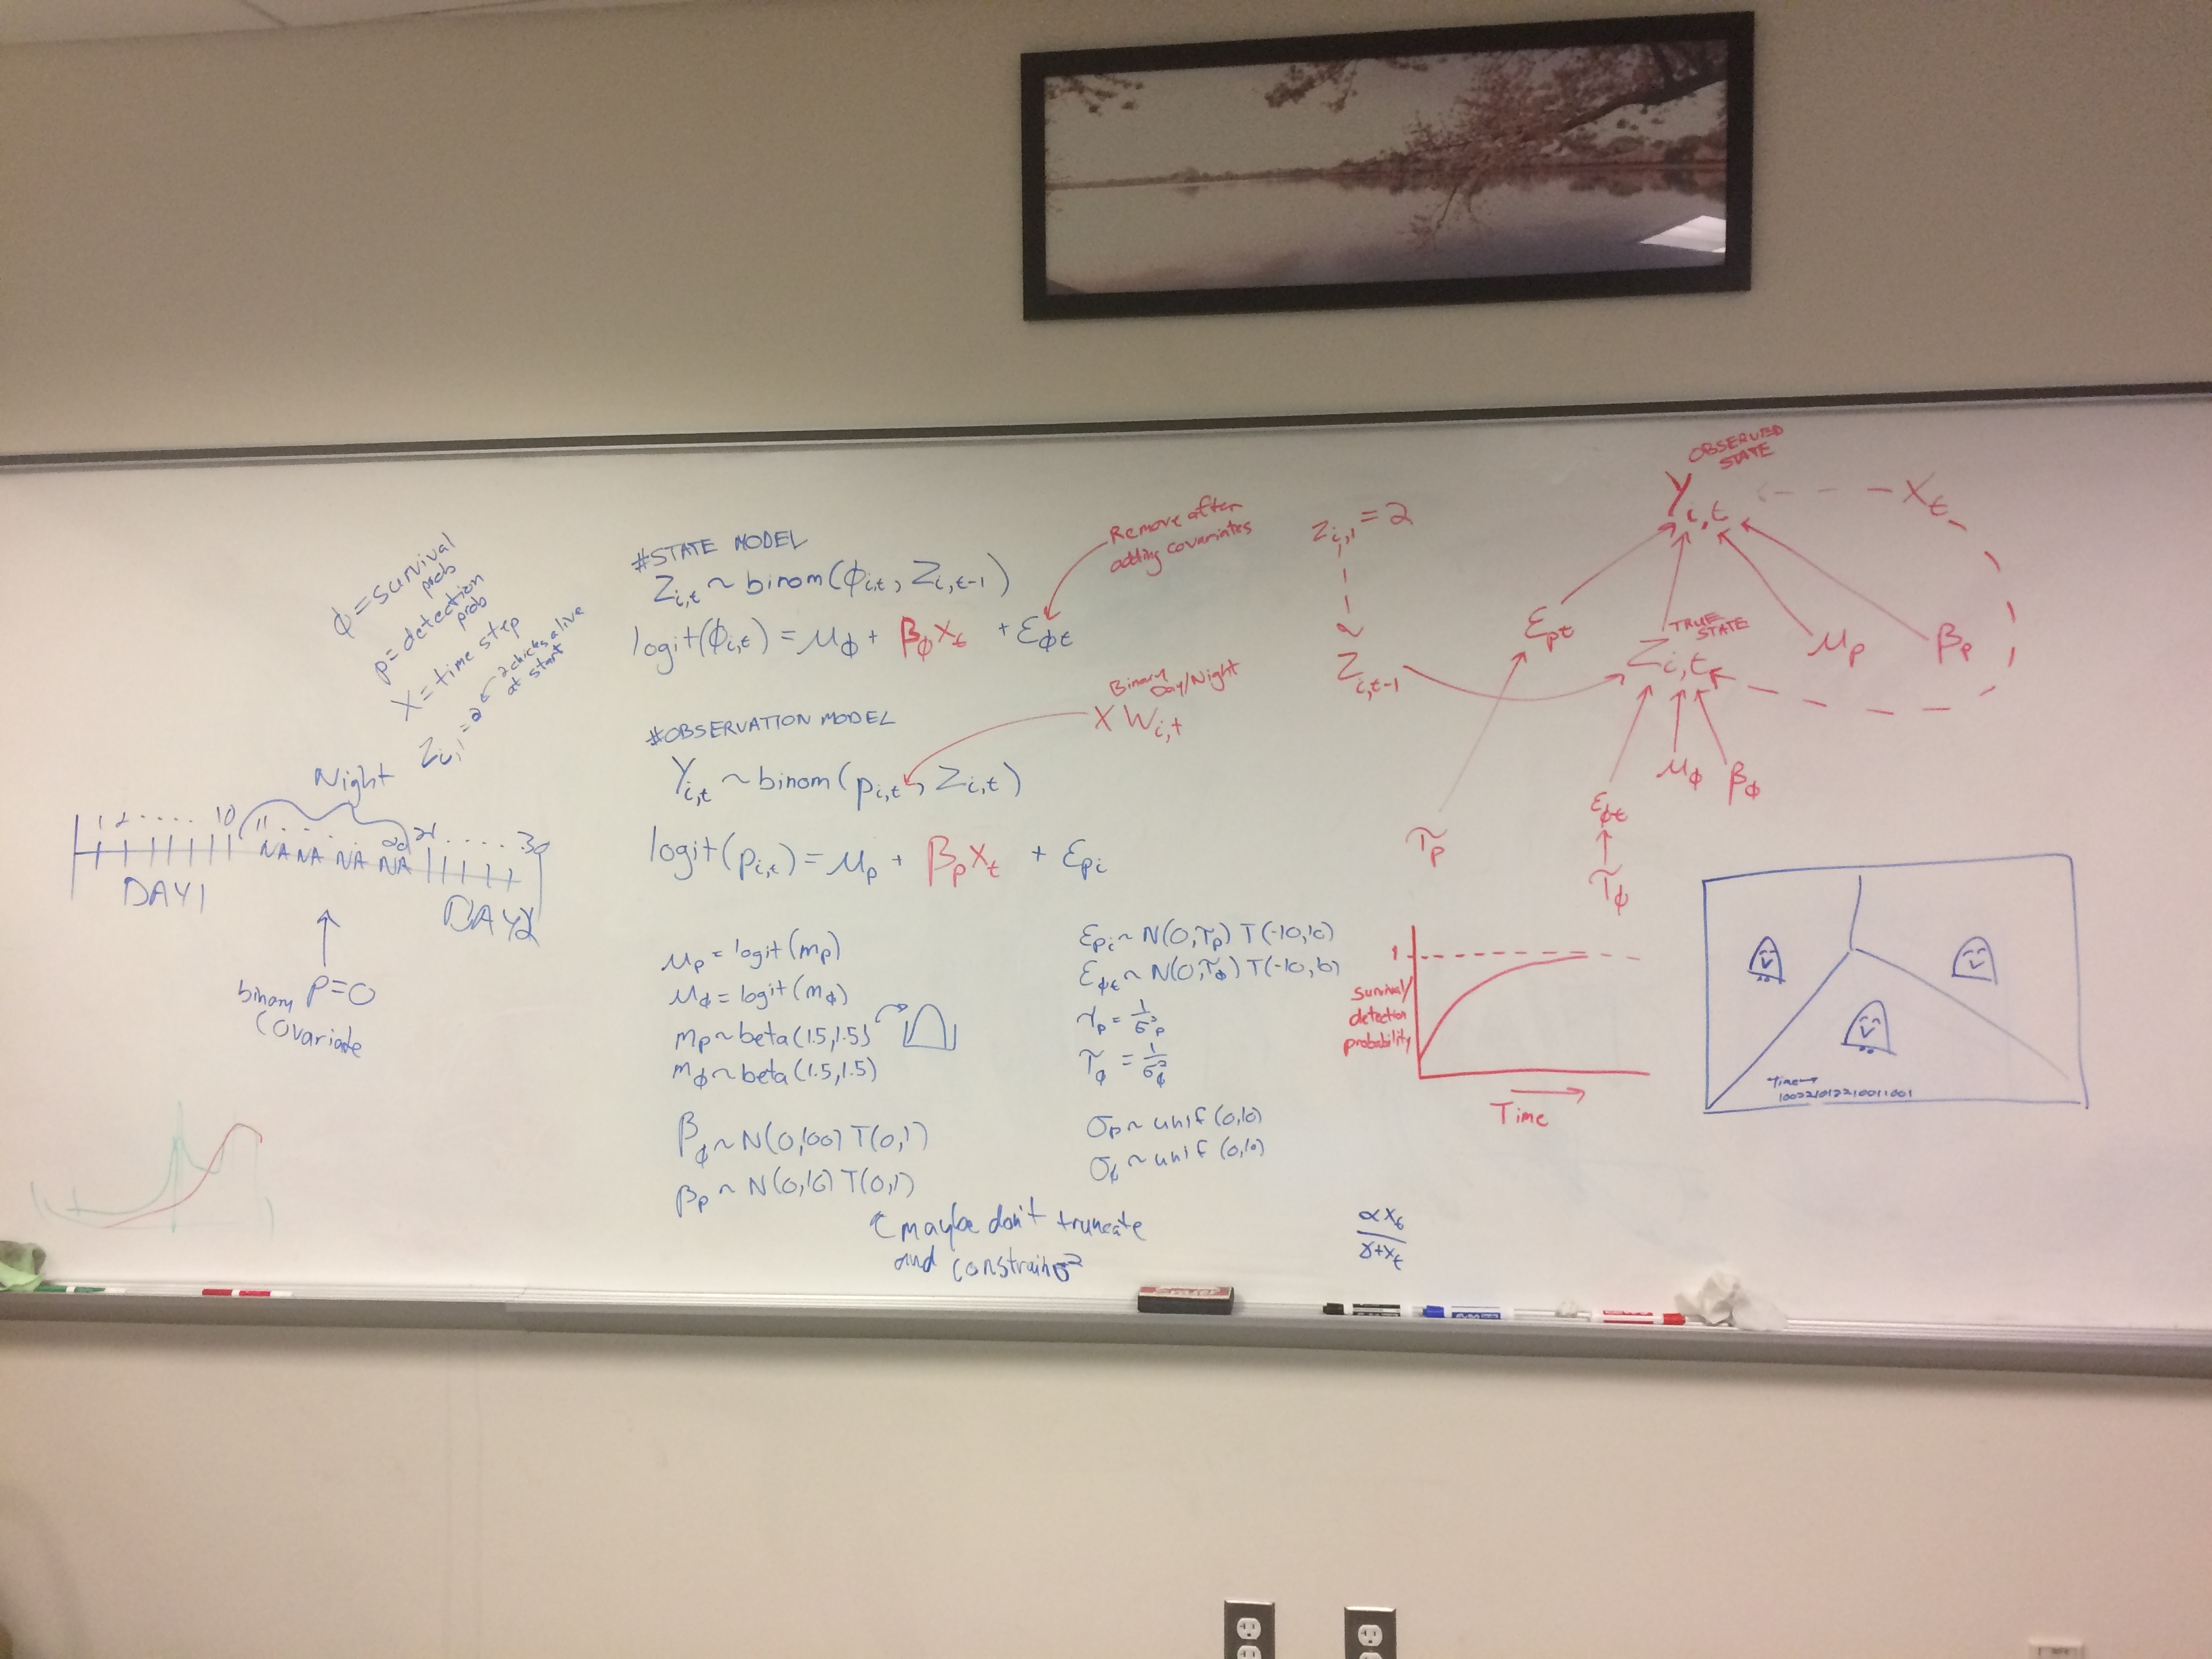 ϕ = survival
prob
p = detection
prob
X = time step
Z_{i,1} = 2 ← 2 chicks alive
at start
Night
1 2 . . . . 10 11 . . . . 20 21 . . . . . 30
NA NA NA NA
DAY 1
DAY 2
binary p=0
covariate
#STATE MODEL
Z_{i,t} ~ binom(ϕ_{i,t}, Z_{i,t-1})
logit(ϕ_{i,t}) = μ_ϕ + β_ϕ X_t + ε_{ϕt}
Remove after
adding covariates
#OBSERVATION MODEL
Binary
Day/Night
X W_{i,t}
Y_{i,t} ~ binom(p_{i,t}, Z_{i,t})
logit(p_{i,t}) = μ_p + β_p X_t + ε_{pi}
μ_p = logit(m_p)
μ_ϕ = logit(m_ϕ)
m_p ~ beta(1.5, 1.5)
m_ϕ ~ beta(1.5, 1.5)
β_ϕ ~ N(0,100) T(0,1)
β_p ~ N(0,10) T(0,1)
↑ maybe don't truncate
and constrain σ²
ε_{pi} ~ N(0,τ_p) T(-10,10)
ε_{ϕt} ~ N(0,τ_ϕ) T(-10,10)
τ_p = 1/σ²_p
τ_ϕ = 1/σ²_ϕ
σ_p ~ unif(0,10)
σ_ϕ ~ unif(0,10)
αX_t / γ+X_t
Z_{i,1} = 2
~
Z_{i,t-1}
OBSERVED
STATE
Y_{i,t}
X_t
ε_{pt}
TRUE
STATE
Z_{i,t}
μ_p
β_p
τ_p
ε_{ϕt}
μ_ϕ
β_ϕ
τ_ϕ
1
Survival/
detection
probability
Time
Time→